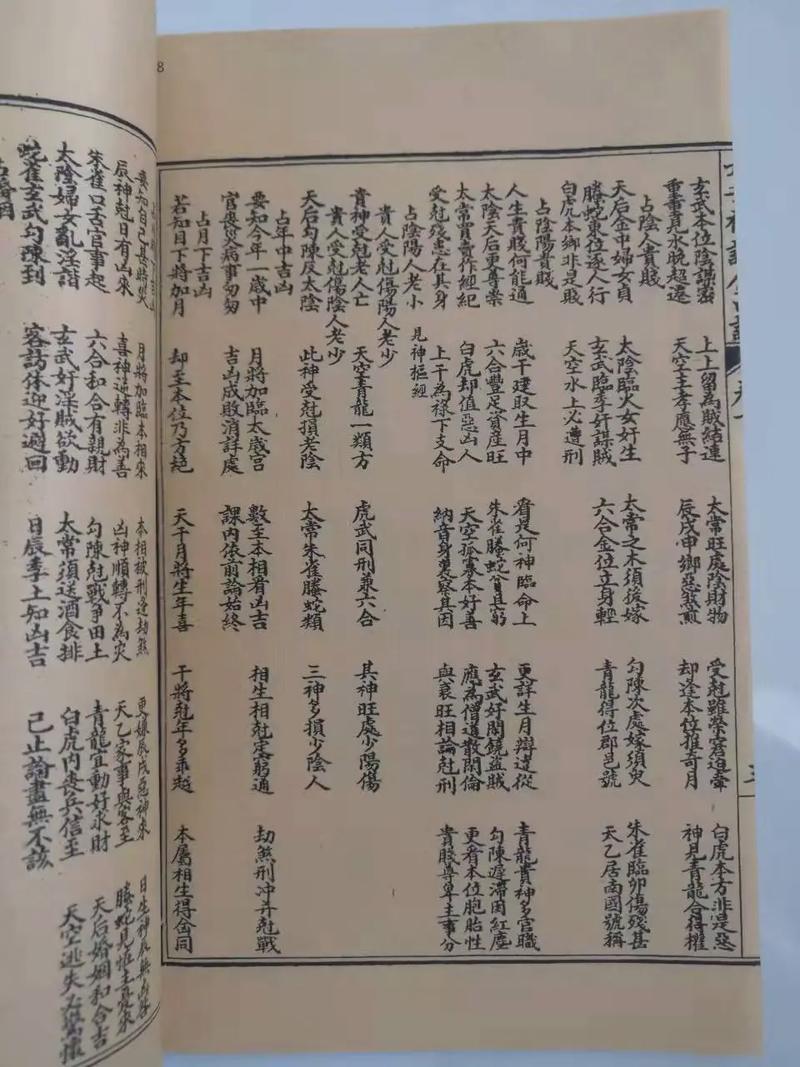 玄武本位陰謀害 上上留為賊結連 太常旺處陰財物 受尅雖榮窘迫牽 白虎本方非是惡
重重見水晚超遷 天空主孝應無子 辰戌申鄉惡煞煎 却逢本位推奇月 神見青龍合得權
占陰人貴賤
天后金中婦女貞 太陰臨火女奸生 太常之木須後嫁 勾陳次處嫁須臾 朱雀臨卯傷殘甚
螣蛇東位逐人行 玄武臨季奸謀賊 六合金位立身輕 青龍得位郡邑號 天乙居南國號稱
白虎本鄉非是賤 天空水上必遭刑
占陰陽貴賤
人生貴賤何能通 歲干建取生月中 看是何神臨命上 更詳生月辯違從 青龍貴神多官職
太陰天后更尊崇 六合豐足資產旺 朱雀螣蛇貧且窮 玄武好鬧饒盜賊 勾陳遲滯因紅塵
太常賣賣作經紀 白虎却值惡凶人 天空孤寡本好善 應為僧道散閒倫 更看本位胞胎性
受尅殘患在其身 上干為祿下支命 納音身裏察其因 與衰旺相論尅刑 貴賤尊卑主事分
占陰陽人老小 見神樞經
貴人受尅傷陽人老少
貴神受尅老人亡 天空青龍一類方 虎武同刑兼六合 其神旺處少陽傷
貴人受尅傷陰人老少
天后勾陳反太陰 此神受尅損老陰 太常朱雀螣蛇類 三神多損少陰人
占年中吉凶
要知今年一歲中 月將加臨太歲宮 數至本相看凶吉 相生相尅定窮通 劫煞刑冲并尅戰
官喪災病事匆匆 吉凶成敗消詳處 課內依前論始終
占月下吉凶
若知目下將加月 却至本位乃方絕 天干月將生年喜 干將尅年多乖越 本屬相生得會同
8
要知自己喜將災 月將加臨本相來 本相被刑逢劫煞 更嫌辰戌惡神來
辰神尅日有凶來 喜神逆轉非為善 凶神順轉不為灾 天乙家事與客至 螣蛇見怪主驚來
朱雀口舌官事起 六合和合有親財 勾陳尅戰爭田土 青龍宜動好求財 天后婚姻和合吉
太陰婦女亂淫諧 玄武好淫賊欲動 太常須送酒食排 白虎內喪兵信至 天空逃失
蛇雀玄武勾陳到 客訪休迎好避回 日辰季上知凶吉 已止論盡無不該